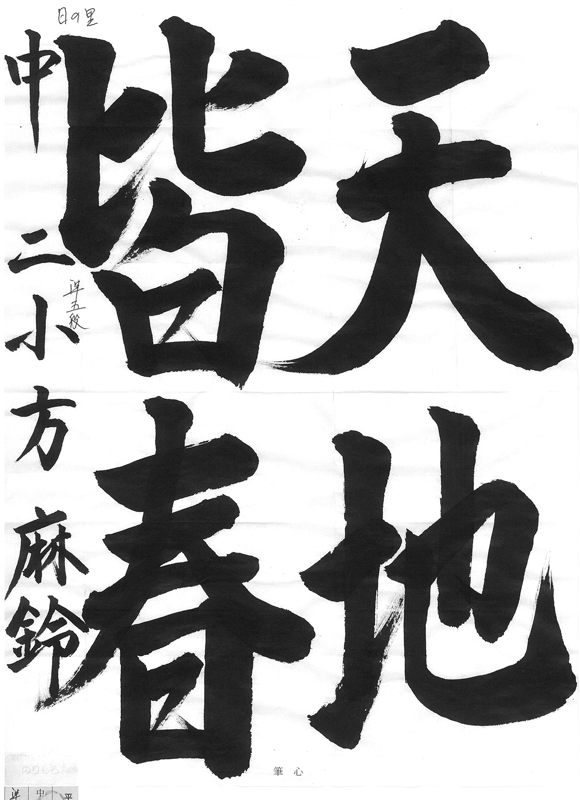 天地
皆春
中二 小方麻鈴
日の里
準五段
筆心